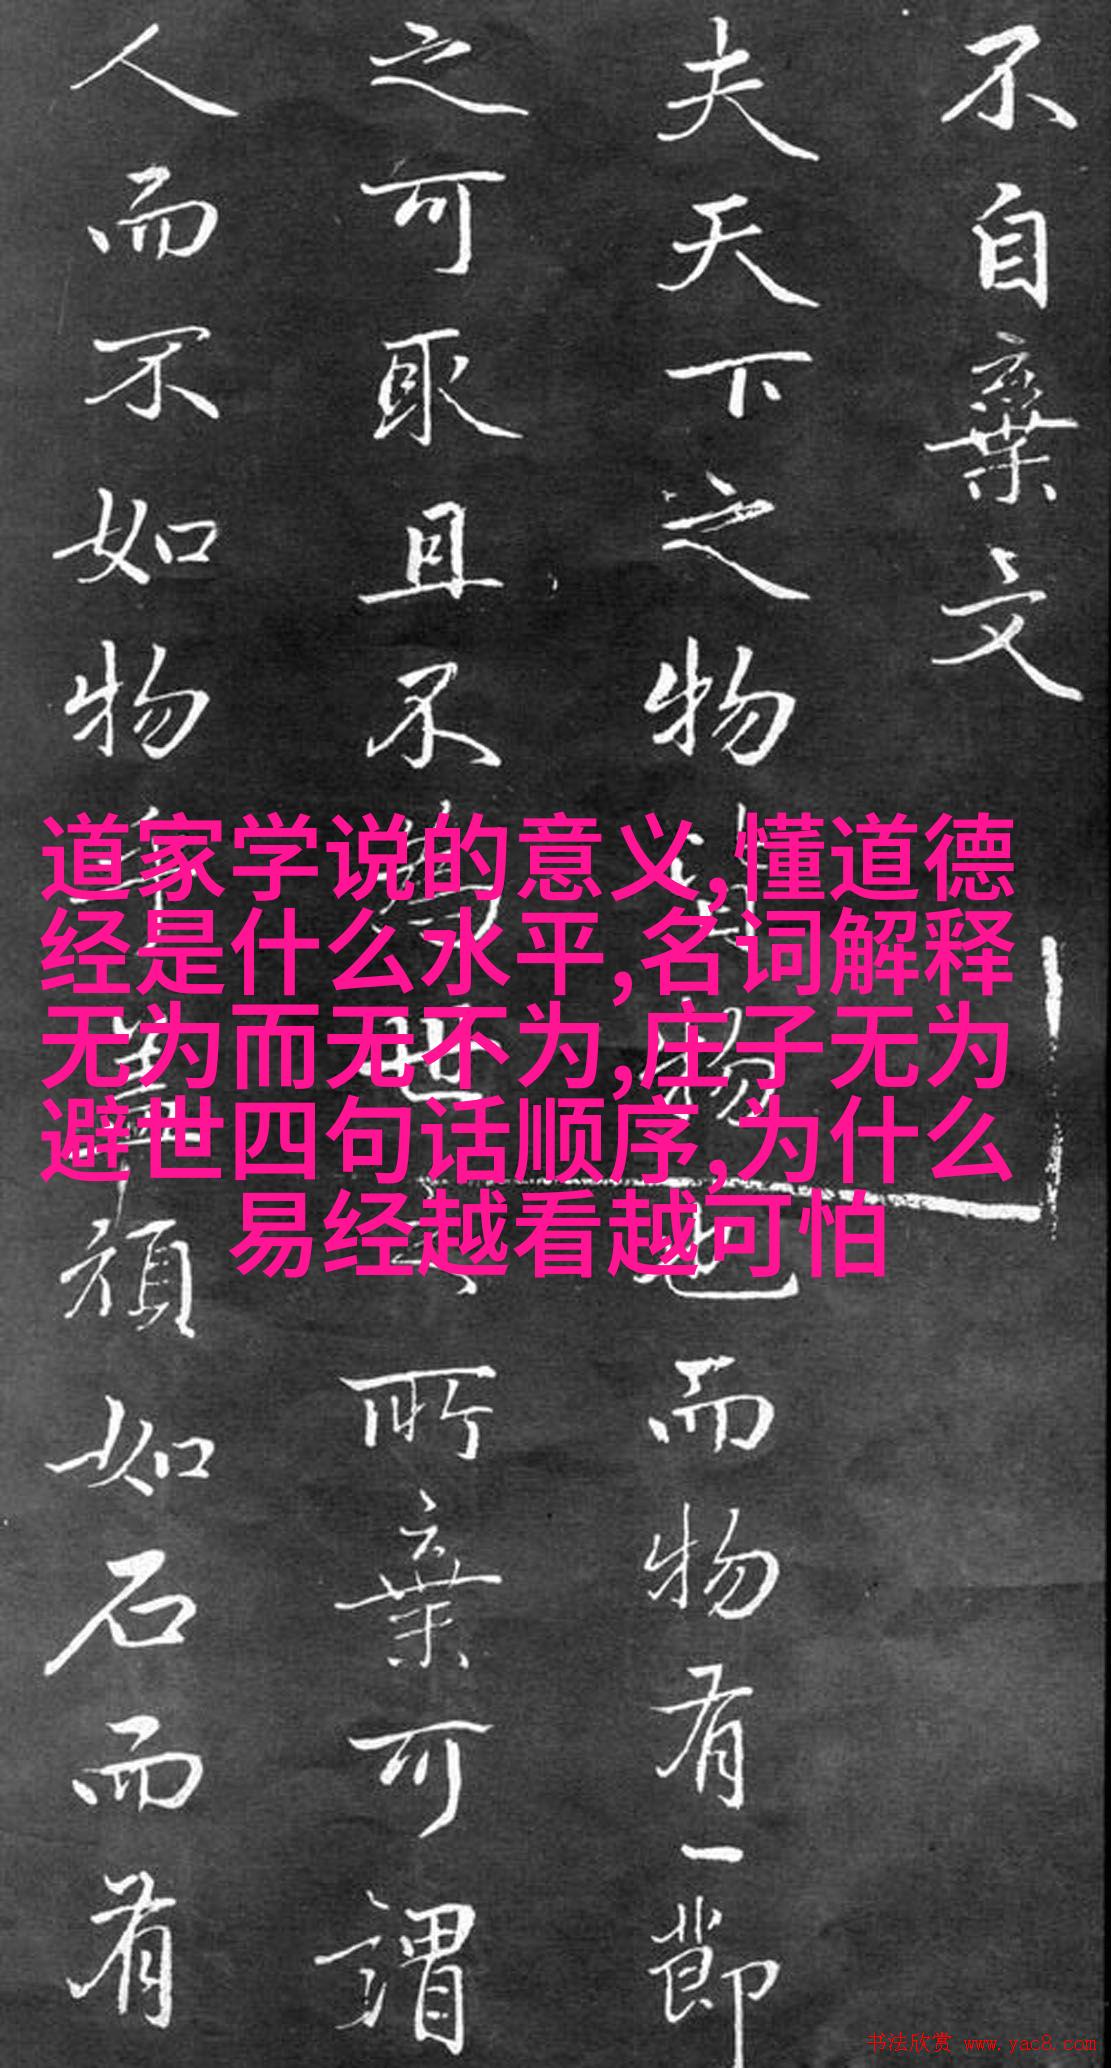 不自棄文
夫天下之物皆物也而物有一節
之可取且不為世之所棄可謂
人而不如物乎蓋頑如石而有
道家学说的意义,懂道德
经是什么水平,名词解释
无为而无不为,庄子无为
避世四句话顺序,为什么
易经越看越可怕
书法欣赏 www.yac8.com